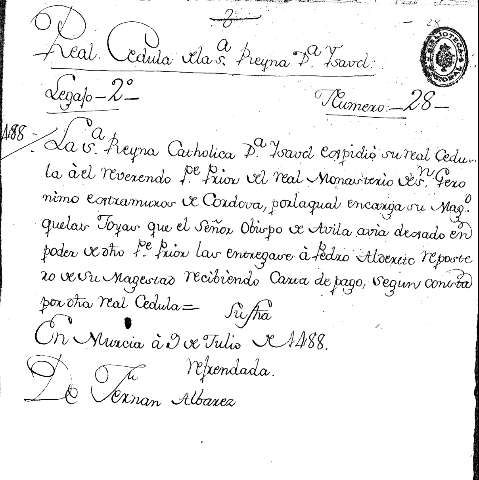 28
Real Cedula de la S.ª Reyna D.ª Ysavel.
Legajo - 2º - Numero: - 28 -
1488 - La S.ª Reyna Catholica D.ª Ysavel expidió su real Cedu-
la à el reverendo P.e Prior de el real Monasterio de S.n Gero
nimo extramuros de Cordova, por la qual encarga su Mag.d
que las Joyas que el Señor Obispo de Avila avia dexado en
poder de dho P.e Prior las entregase à Pedro reposte
ro de Su Magestad recibiendo Carta de pago, segun consta
por otra real Cedula = Su fha
En Murcia à 9 de Julio de 1488.
refrendada.
De Fernan Albarez